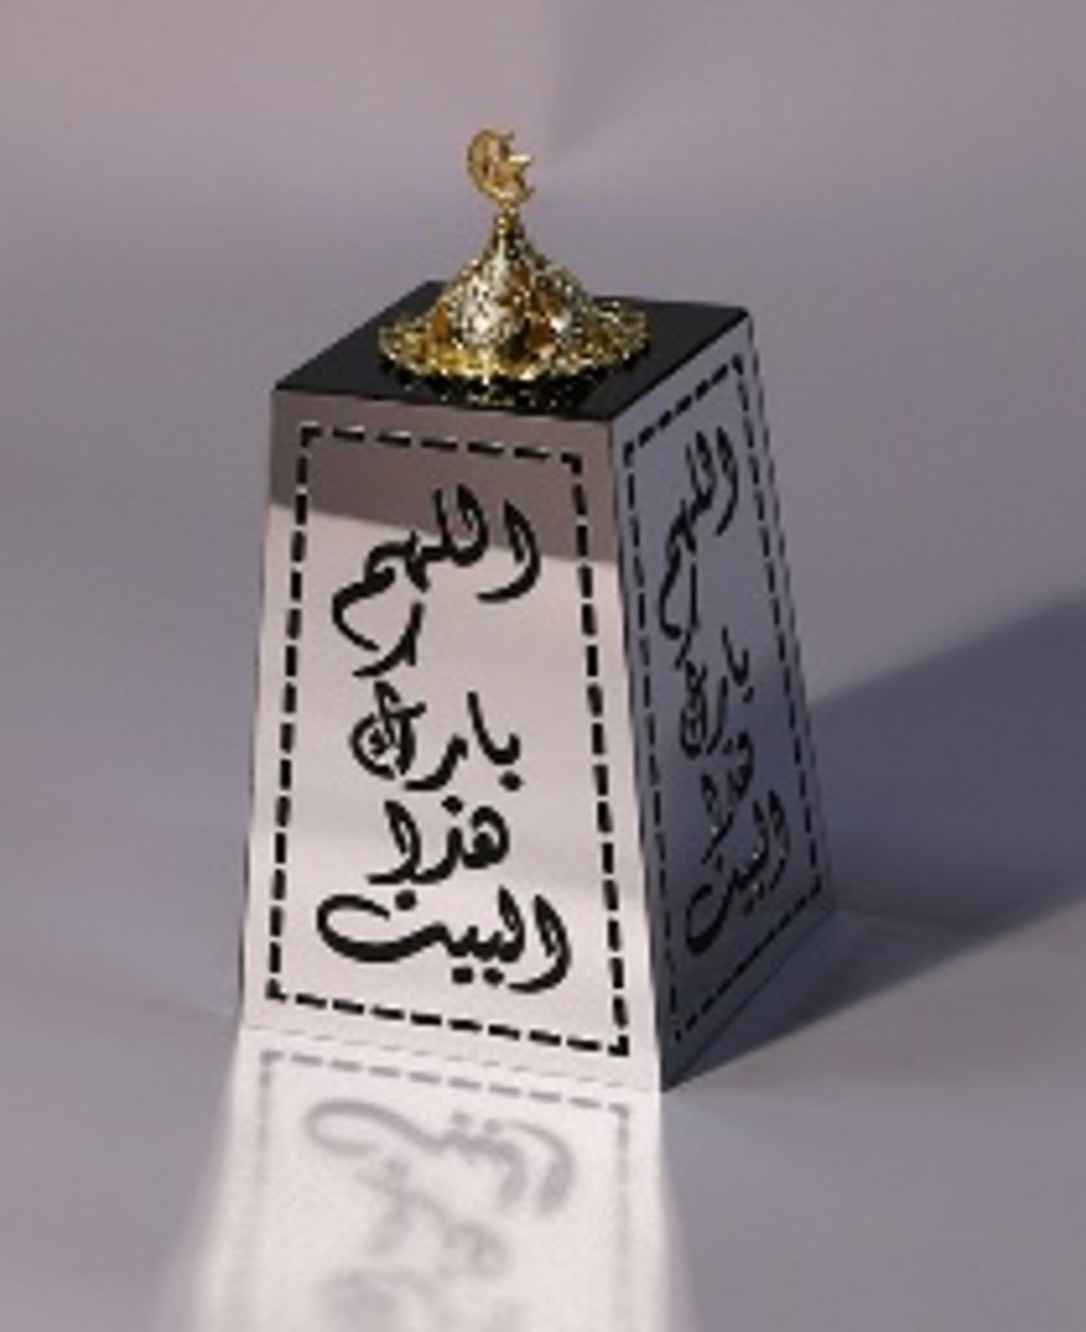 اللهم
بارك
هذا
البيت
اللهم
بارك
هذا
البيت